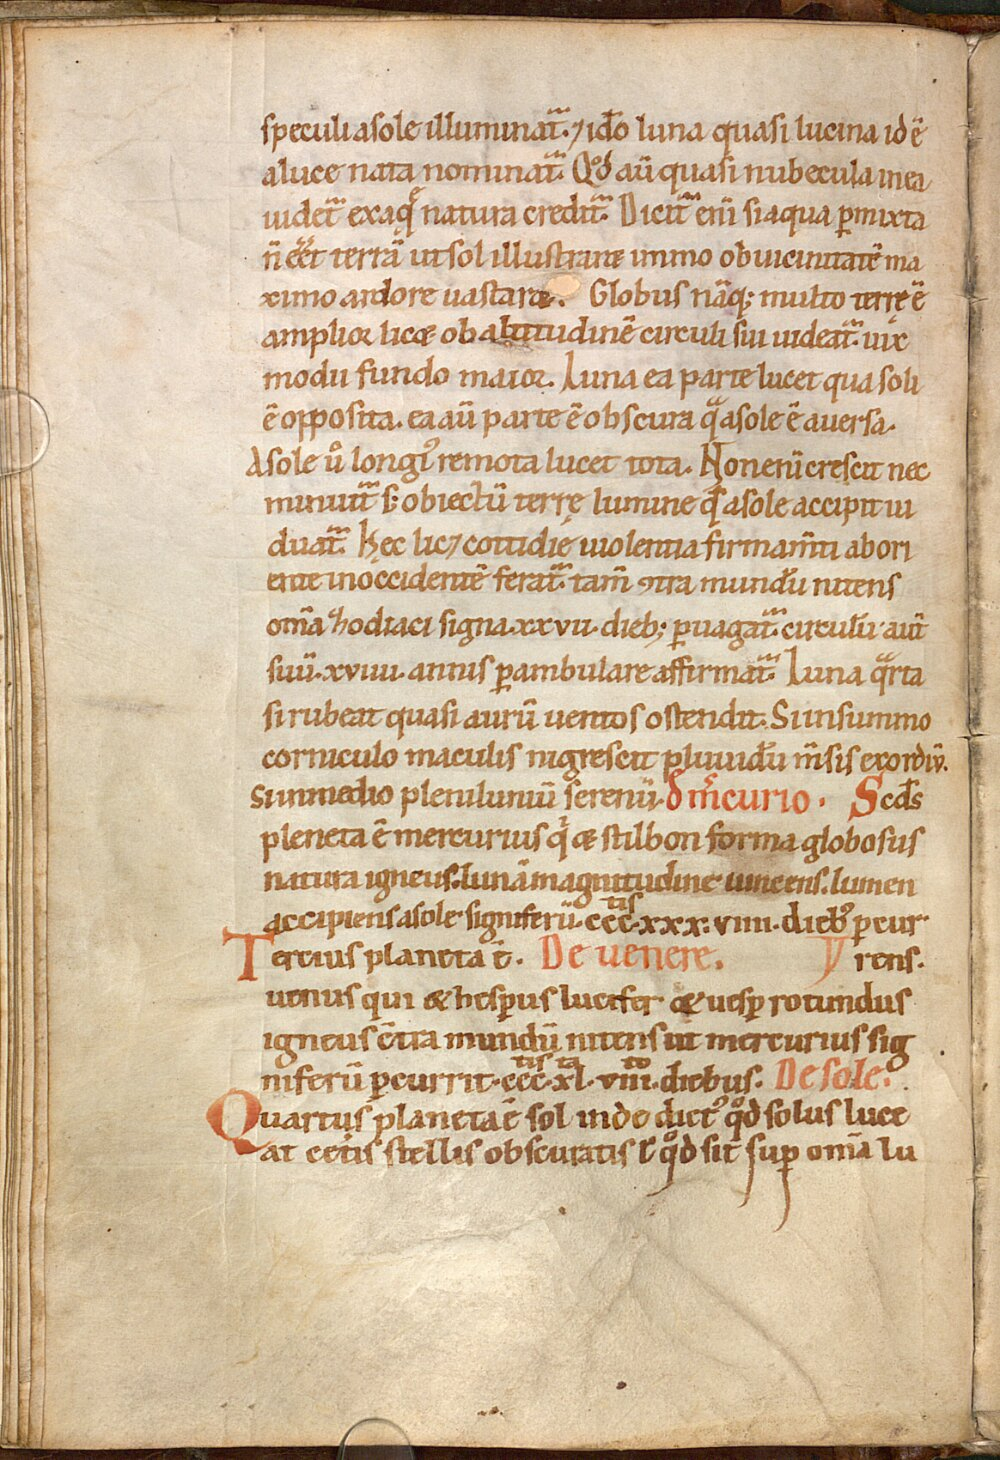 speculi a sole illuminat᷑. ⁊ idō luna quasi lucina id ē
a luce nata nominat᷑. Qd̄ aū quasi nubecula in ea
uidet᷑ ex aqͣ natura credit᷑. Dicit᷑ eni si aqua ꝑmixta
n̄ eēt terrā ut sol illustrare immo ob uicinitatē ma
ximo ardore uastare. Globus nāq; multo terrę ē
amplior licæ ob altitudinē circuli sui uideat᷑. uix
modii fundo maior. Luna ea parte lucet qua soli
ē opposita. ea aū parte ē obscura qͣ a sole ē auersa.
A sole ů longi᷒ remota lucet tota. Non enī crescit nec
minuit᷑ s; obiectū terrę lumine qd̄ a sole accipit ui
duat᷑. Hęc lic⁊ cottidię uiolentia firmam̄ti ab ori
ente in occidentē ferat᷑. tam̄ ꝯtra mundū nitens
om̄a zhodiaci signa .xxvii. dieb; ꝑuagat᷑. circulū aut̄
suū .xviiii. annis ꝑambulare affirmat᷑. Luna qͣrta
si rubeat quasi aurū uentos ostendit. Si in summo
corniculo maculis nigrescit pluuidū m̄sis exordiū.
Si in medio pleniluniū serenū. D m̄curio. Scd̄s
pleneta ē mercurius qͥ æ stilbon forma globosus
natura igneus. lunā magnitudine uincens. lumen
accipiens a sole signiferū .ccc.tis xxx. viiii. dieb᷒ ꝑcur
Tercius planeta ē. De venere. rens.
uenus qui & hesꝑus lucifer & uesꝑ rotundus
igneus cōtra mundū nitens ut mercurius sig
niferū ꝑcurrit .ccc.tis xl.ta viii.to diebus. De sole.
Quartus planeta ē sol inde dict᷒ qd̊ solus luce
at cetis stellis obscuratis ł qd̊ sit suꝑ om̄a lu